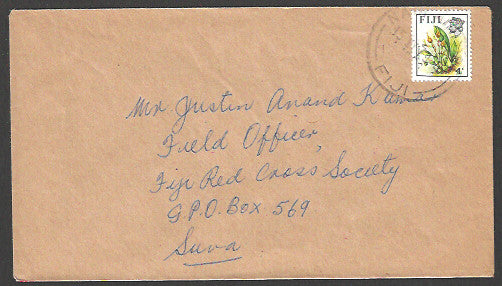 FIJI
4c
FIJI
Mr Justin Anand Kumar
Field Officer,
Fiji Red Cross Society
G.P.O. Box 569
Suva